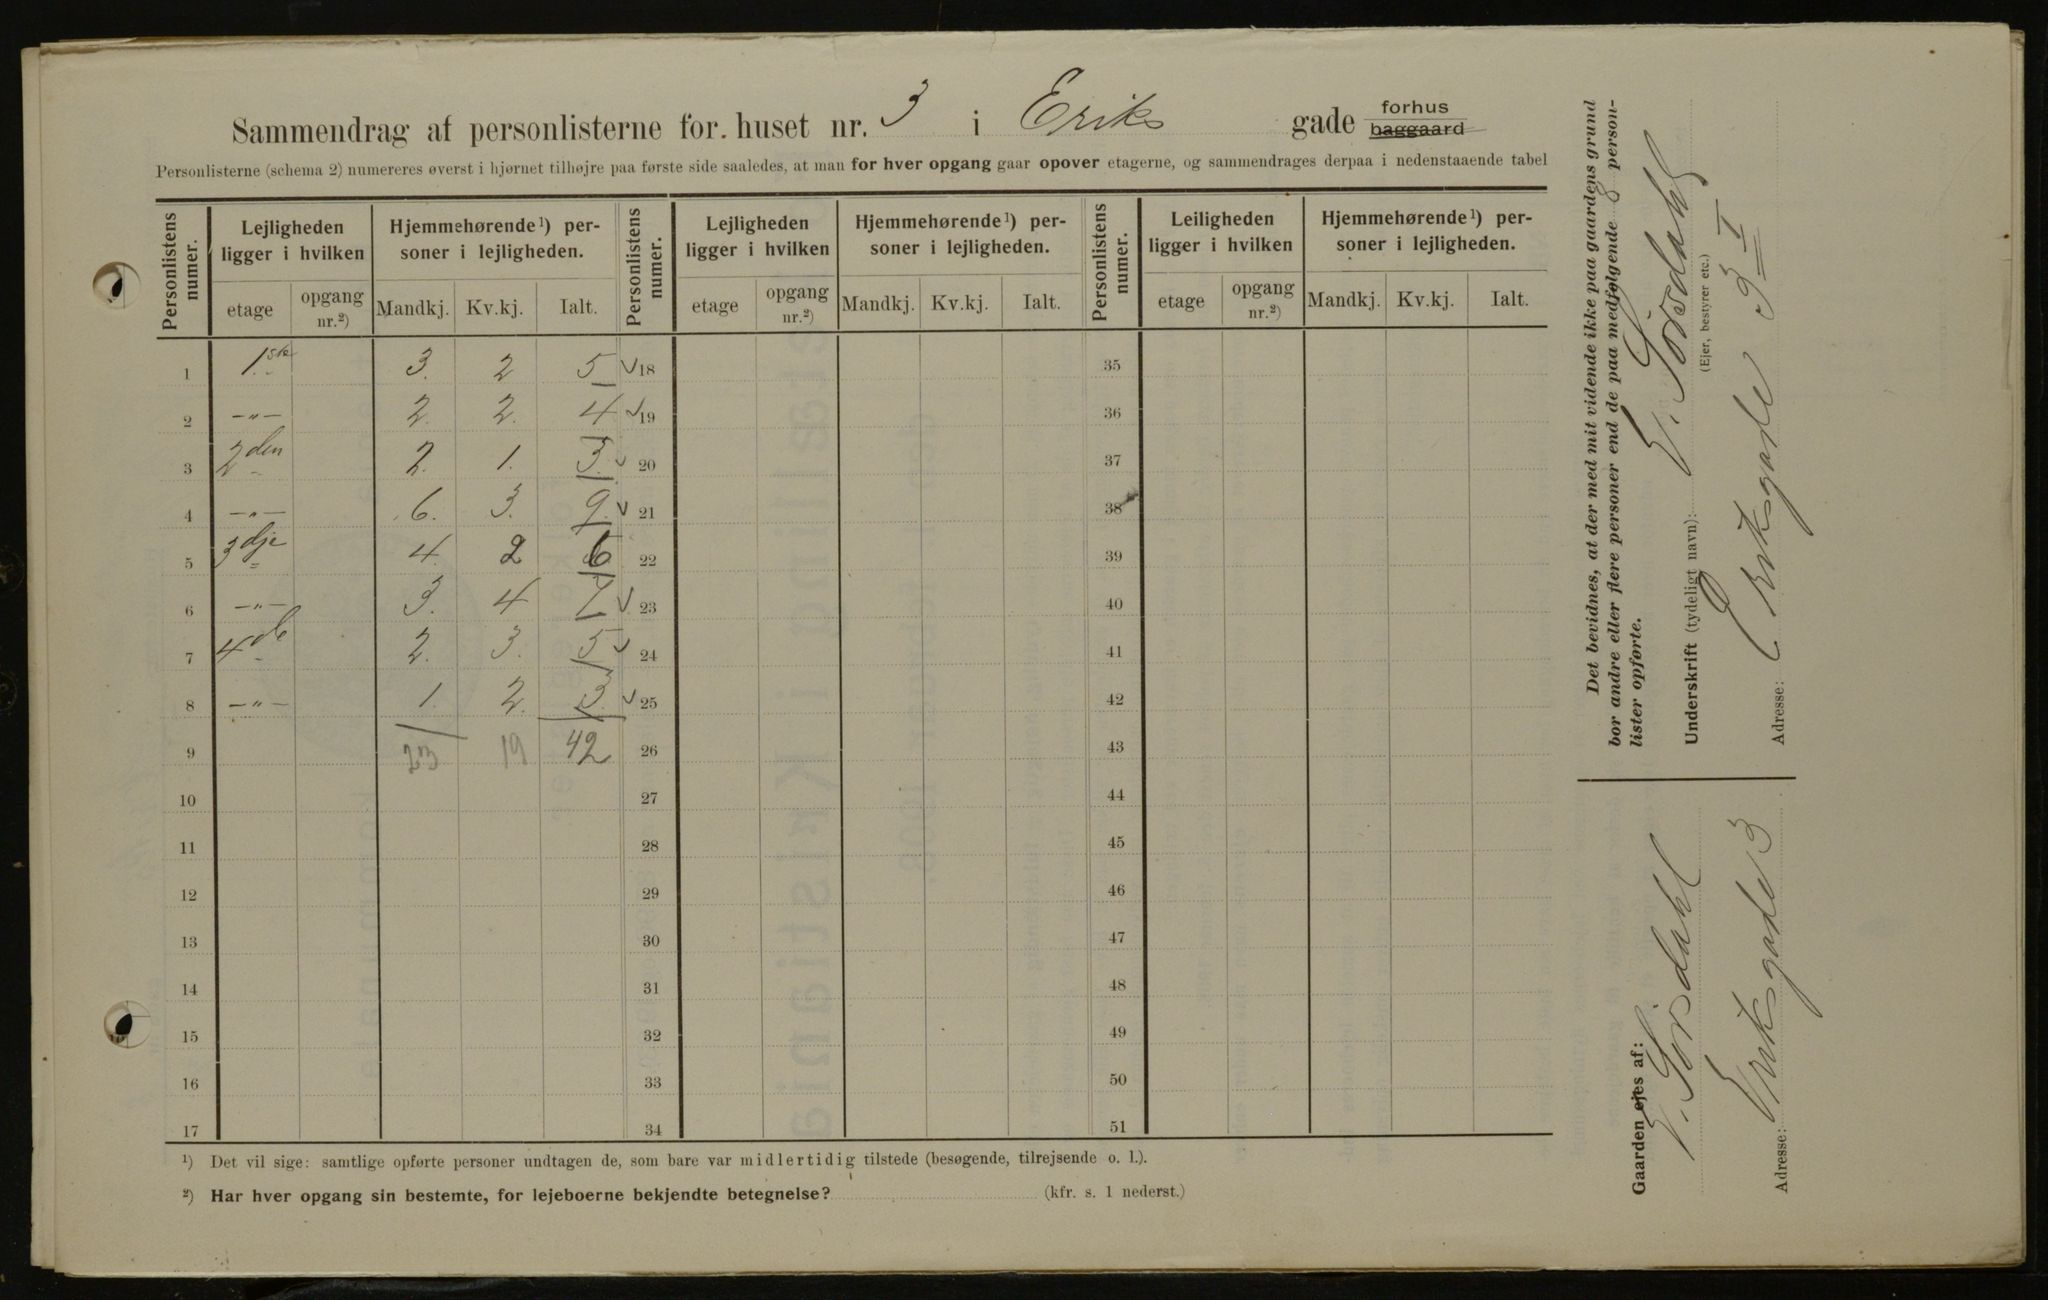 Sammendrag af personlisterne for huset nr. 3 i Eriks gade forhus
baggaard
Personlisterne (schema 2) numereres øverst i hjørnet tilhøjre paa første side saaledes, at man for hver opgang gaar opover etagerne, og sammendrages derpaa i nedenstaaende tabel
Personlistens numer. Lejligheden ligger i hvilken Hjemmehørende¹) personer i lejligheden. Personlistens numer. Lejligheden ligger i hvilken Hjemmehørende¹) personer i lejligheden. Personlistens numer. Leiligheden ligger i hvilken Hjemmehørende¹) personer i lejligheden.
etage opgang nr.²) Mandkj. Kv.kj. Ialt. etage opgang nr.²) Mandkj. Kv.kj. Ialt. etage opgang nr.²) Mandkj. Kv.kj. Ialt.
1 1.ste 3. 2 5 ✓ 18 35
2 —"— 2. 2. 4 ✓ 19 36
3 2den 2. 1. 3. ✓ 20 37
4 —"— 6. 3. 9. ✓ 21 38
5 3dje 4. 2 6 22 39
6 —"— 3. 4 7 ✓ 23 40
7 4de 2. 3. 5 ✓ 24 41
8 —"— 1. 2. 3. ✓ 25 42
9 23 19 42 26 43
10 27 44
11 28 45
12 29 46
13 30 47
14 31 48
15 32 49
16 33 50
17 34 51
¹) Det vil sige: samtlige opførte personer undtagen de, som bare var midlertidig tilstede (besøgende, tilrejsende o. l.).
²) Har hver opgang sin bestemte, for lejeboerne bekjendte betegnelse? (kfr. s. 1 nederst.)
Det bevidnes, at der med mit vidende ikke paa gaardens grund
bor andre eller flere personer end de paa medfølgende 8 person-
lister opførte.
Underskrift (tydeligt navn): E. Torsdahl
(Ejer, bestyrer etc.)
Adresse: Eriksgade 3 I
Gaarden ejes af: E. Torsdahl
Adresse: Eriksgade 3